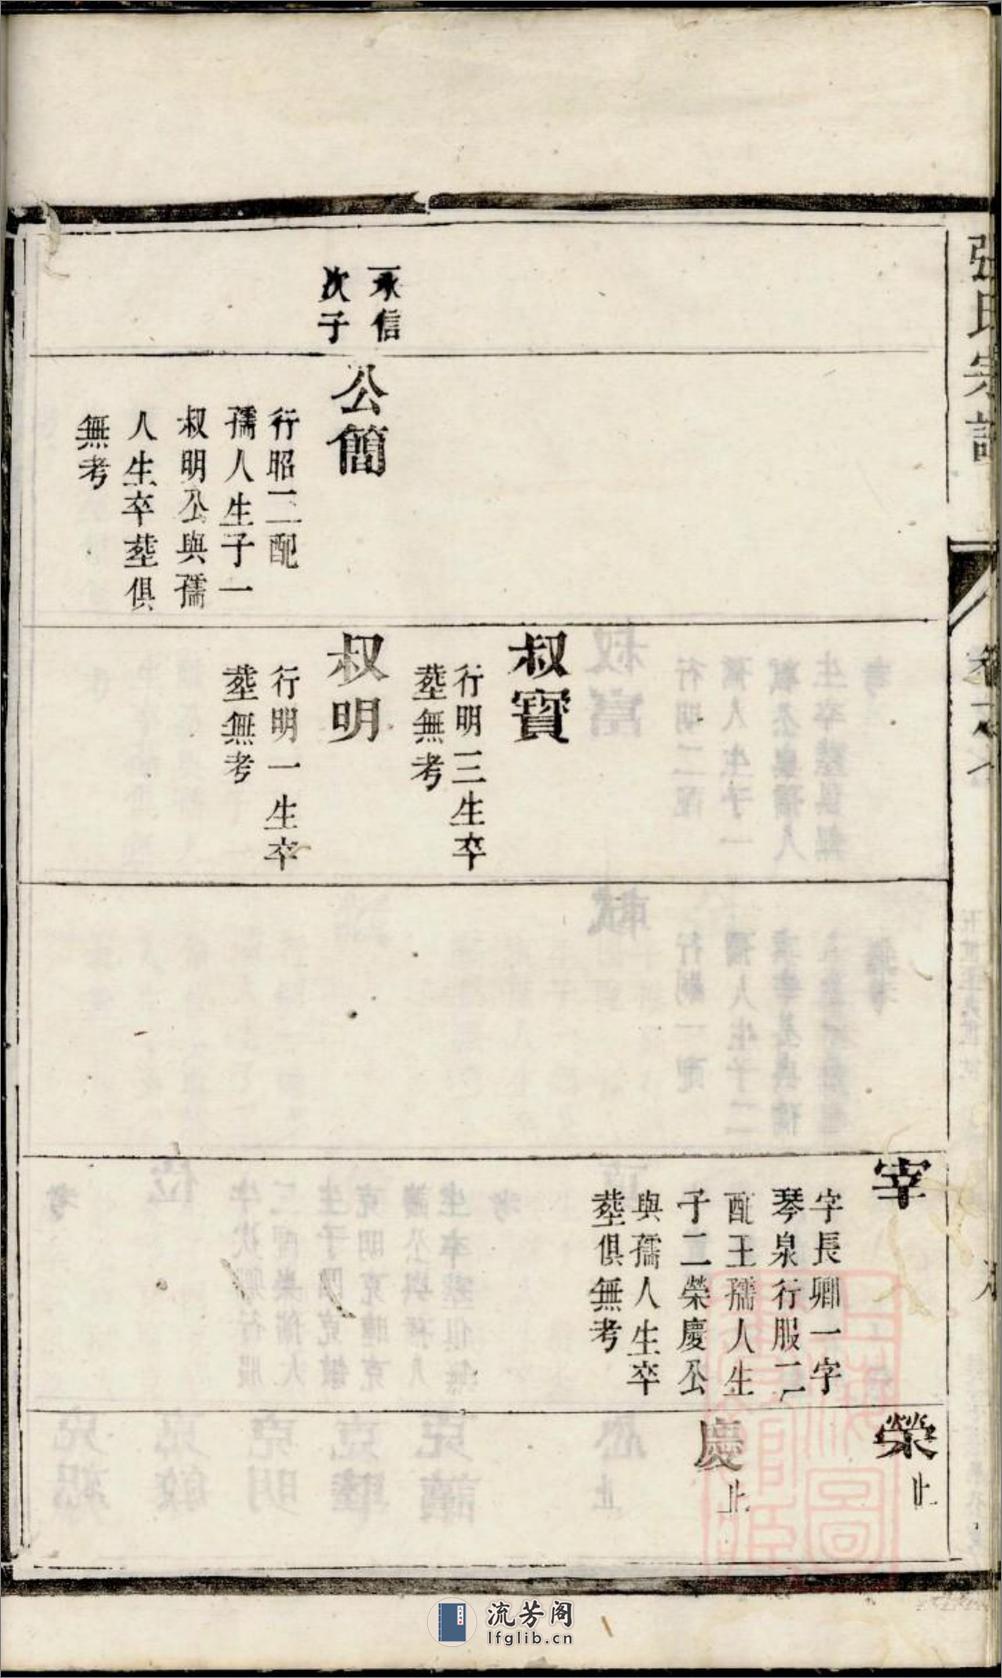 張氏宗譜
承信
次子
公簡
行昭二配
孺人生子一
叔明公與孺
人生卒塟俱
無考
叔寶
行明三生卒
塟無考
叔明
行明一生卒
塟無考
宰
字長卿一字
琴泉行服二
配王孺人生
子二榮慶公
與孺人生卒
塟俱無考
榮
止
慶
止
流芳阁
lfglib.cn